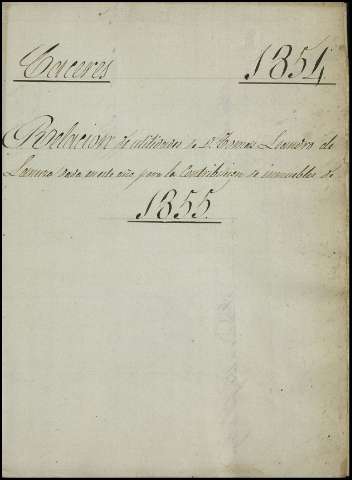 Caceres 1854
Relacion de utilidades de D. Tomas Leandro de
Lanuza dada en este año para la Contribucion de inmuebles de
1855.